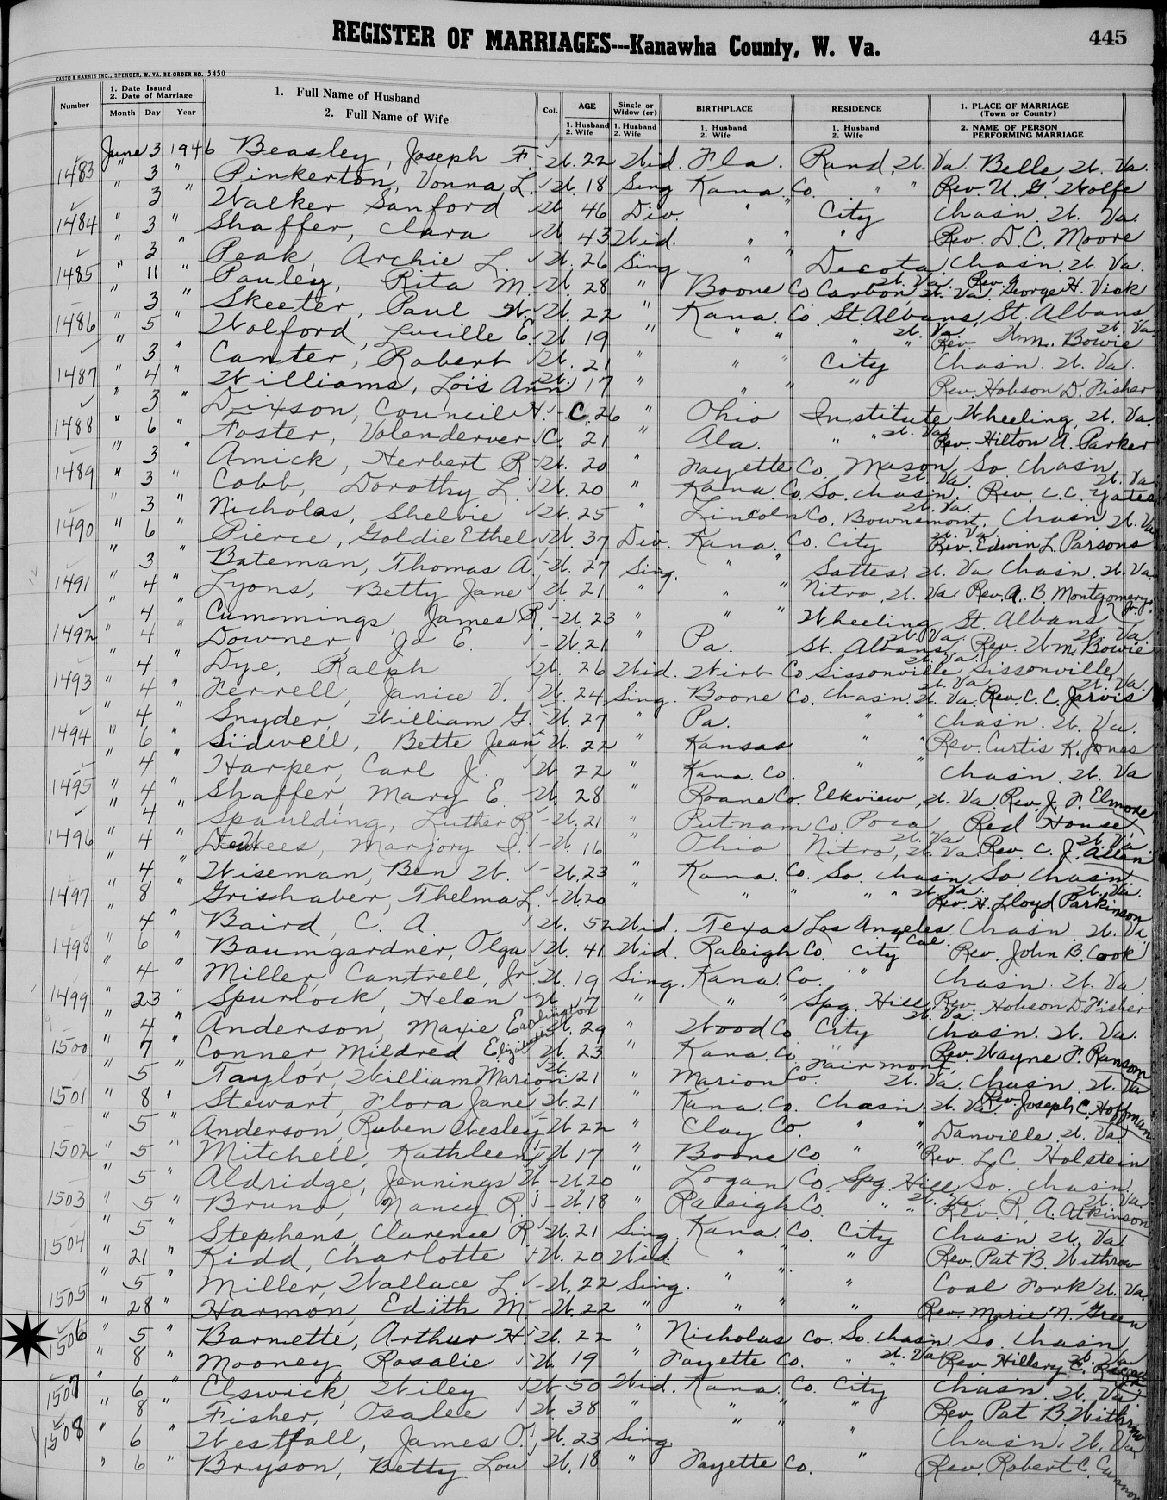 REGISTER OF MARRIAGES---Kanawha County, W. Va. 445
CASTO & HARRIS INC., SPENCER, W. VA. RE-ORDER NO. 5450
Number 1. Date Issued 2. Date of Marriage Month Day Year 1. Full Name of Husband 2. Full Name of Wife Col. AGE 1. Husband 2. Wife Single or Widow (er) 1. Husband 2. Wife BIRTHPLACE 1. Husband 2. Wife RESIDENCE 1. Husband 2. Wife 1. PLACE OF MARRIAGE (Town or County) 2. NAME OF PERSON PERFORMING MARRIAGE
1483 June 3 1946 Beasley, Joseph F. W. 22 Wid. Fla. Rand, W. Va. Belle W. Va.
" 3 " Pinkerton, Vonna L. W. 18 Sing Kana. Co. " " Rev. U. G. Wolfe
1484 " 3 " Walker Sanford W 46 Div. " " City Chasn. W. Va.
" 3 " Shaffer, Clara W 43 Wid. " " " Rev. D. C. Moore
1485 " 3 " Peak, Archie L. W. 26 Sing " " Decota, W. Va. Chasn. W. Va.
" 11 " Pauley, Rita M. W. 28 " Boone Co Carbon, W. Va. Rev. George H. Viak
1486 " 3 " Skeeter, Paul W. W. 22 " Kana. Co. St. Albans, W. Va. St. Albans W. Va.
" 5 " Wolford, Lucille E. W 19 " " " " " Rev. Wm. Bowie
1487 " 3 " Canter, Robert W. 21 " " " City Chasn. W. Va.
" 4 " Williams, Lois Ann W. 17 " " " Rev. Hobson D. Fisher
1488 " 3 " Dixson, Council H. C. 26 " Ohio Institute W. Va. Wheeling, W. Va.
" 6 " Foster, Volanderver C. 21 " Ala. " " Rev. Hilton A. Parker
1489 " 3 " Amick, Herbert R. W. 20 " Fayette Co. Mason W. Va. So Chasn W. Va.
" 3 " Cobb, Dorothy L. W. 20 " Kana Co So. Chasn. W. Va. Rev. C. C. Yates
1490 " 3 " Nicholas, Shelvie W. 25 " Lincoln Co. Bownemont, W. Va. Chasn. W. Va
" 6 " Pierce, Goldie Ethel W. 37 Div. Kana. Co. City Rev. Edwin L. Parsons
1491 " 3 " Bateman, Thomas A. W. 27 Sing. " " Sattes, W. Va Chasn. W. Va
" 4 " Lyons, Betty Jane W. 21 " " " Nitro, W. Va Rev. A. B Montgomery Jr.
1492 " 4 " Cummings, James R. W. 23 " " " Wheeling W. Va. St. Albans W. Va.
" 4 " Downer, Jo E. W. 21 " Pa. St. Albans W. Va. Rev. W. M. Bowie
1493 " 4 " Dye, Ralph W. 26 Wid. Wirt Co Sissonville W. Va. Sissonville W. Va.
" 4 " Ferrell, Janice V. W. 24 Sing. Boone Co. Chasn. W. Va. Rev. C. C. Jarvis
1494 " 4 " Snyder, William G. W. 27 " Pa. " " Chasn. W. Va.
" 6 " Sidwell, Bette Jean W. 22 " Kansas " " Rev. Curtis K. Jones
1495 " 4 " Harper, Carl J. W. 22 " Kana. Co. " " Chasn. W. Va
" 4 " Shaffer, Mary E. W. 28 " Roane Co. Elkview, W. Va Rev. J. F. Elmore
1496 " 4 " Spaulding, Luther R W. 21 " Putnam Co. Poca W. Va Red House, W. Va.
" 4 " DeWees, Marjory I. W. 16 " Ohio Nitro, W. Va. Rev. C. J. Allen
1497 " 4 " Wiseman, Ben W. W. 23 " Kana. Co. So. Chasn W. Va. So Chasn W. Va.
" 8 " Grishaber, Thelma L. W. 20 " " " " " Rev. H. Lloyd Parkinson
1498 " 4 " Baird, C. A. W. 52 Wid. Texas Los Angeles Cal. Chasn W. Va.
" 6 " Baumgardner, Olga W. 41 Wid. Raleigh Co. City Rev. John B. Cook
1499 " 4 " Miller, Cantrell, Jr W. 19 Sing. Kana Co. " Chasn. W. Va
" 23 " Spurlock, Helen W. 17 " " " Spg. Hill W. Va. Rev. Hobson D. Fisher
1500 " 4 " Anderson, Maxie Eadlington W. 29 " Wood Co City Chasn. W. Va.
" 7 " Conner, Mildred Elizabeth W. 23 " Kana. Co. " Rev. Wayne F. Ransom
1501 " 5 " Taylor, William Marion W. 21 " Marion Co. Fairmont, W. Va. Chasn W. Va
" 8 " Stewart, Flora Jane W. 21 " Kana. Co. Chasn W. Va. Rev. Joseph C. Hoffman
1502 " 5 " Anderson, Ruben Wesley W 22 " Clay Co. " " Danville. W. Va
" 5 " Mitchell, Kathleen W 17 " Boone Co " " Rev. L. C. Holstein
1503 " 5 " Aldridge, Jennings W. W. 20 " Logan Co. Spg. Hill W. Va. So. Chasn. W. Va.
" 5 " Bruno, Nancy R. W. 18 " Raleigh Co. " " Rev. R. A. Atkinson
1504 " 5 " Stephens, Clarence R W. 21 Sing. Kana. Co. City Chasn W. Va
" 21 " Kidd, Charlotte W. 20 Wid. " " " Rev. Pat B. Withrow
1505 " 5 " Miller, Wallace L. W. 22 Sing. " " " Coal Fork W. Va.
" 28 " Harmon, Edith M. W. 22 " " " " Rev. Marie N. Green
1506 " 5 " Barnette, Arthur H W. 22 " Nicholas Co. So. Chasn W. Va So. Chasn W. Va
" 8 " Mooney, Rosalie W. 19 " Fayette Co. " " Rev. Hillery C.
1507 " 6 " Elswick, Wiley W 50 Wid. Kana. Co. City Chasn. W. Va.
" 8 " Fisher, Osalee W. 38 " " " " Rev. Pat B. Withrow
1508 " 6 " Westfall, James O. W. 23 Sing " " " Chasn. W. Va
" 6 " Bryson, Betty Lou W. 18 " Fayette Co. " Rev. Robert C.